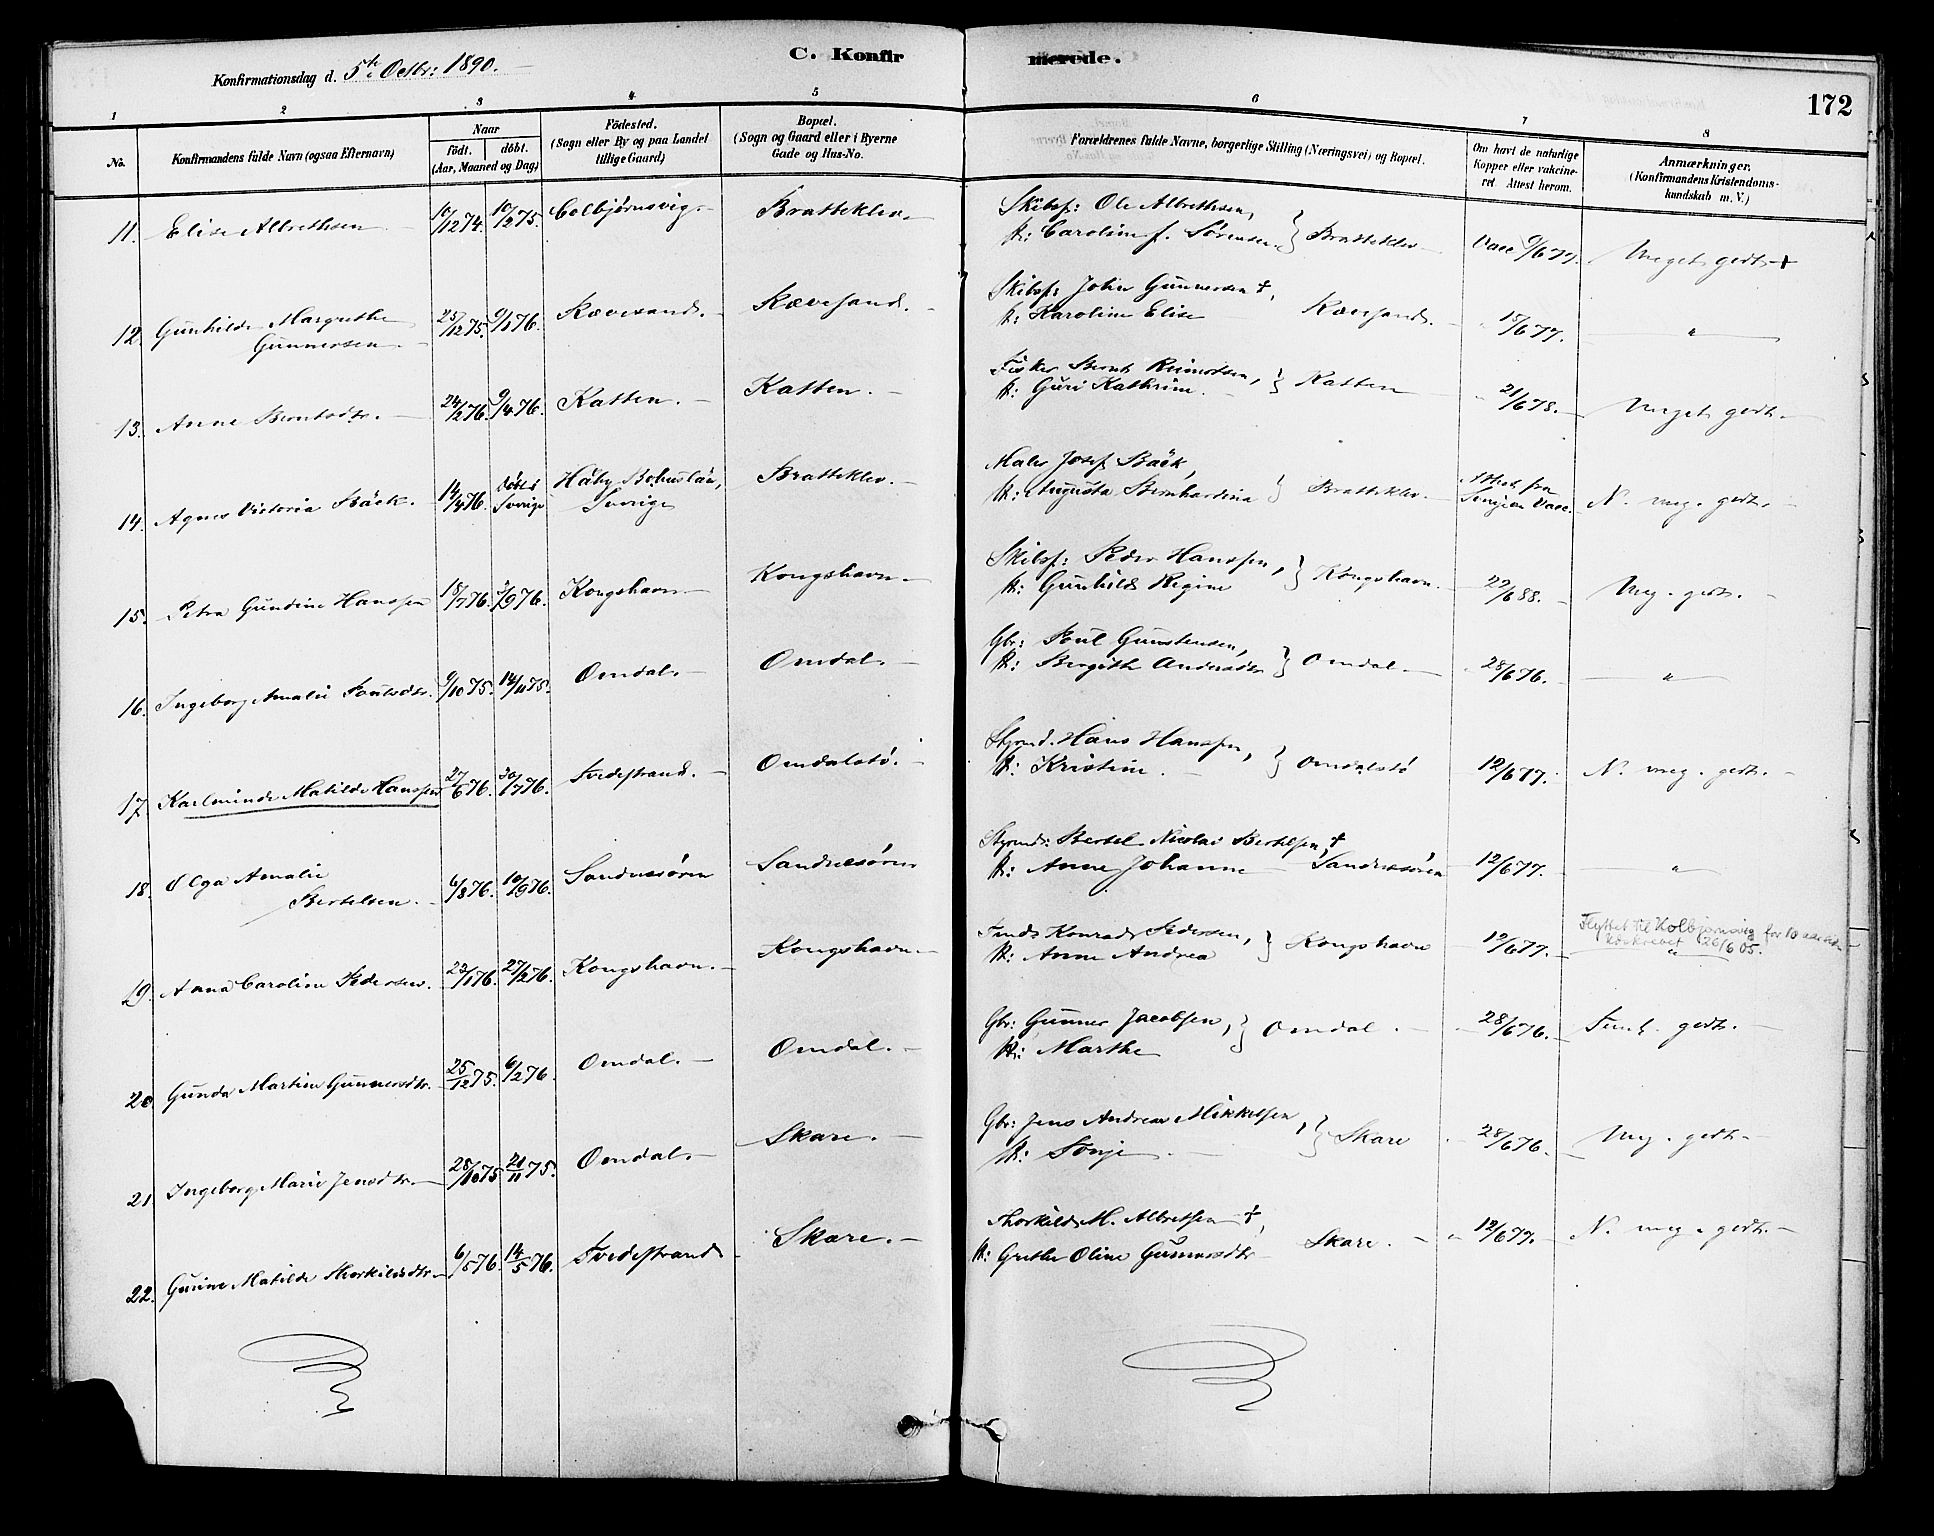 Konfirmationsdag d. 5te Octbr: 1890.
C. Konfirmerede.
172
1 2 3 4 5 6 7 8
No.
Konfirmandens fulde Navn (ogsaa Efternavn)
Naar
födt. döbt.
(Aar, Maaned og Dag)
Födested.
(Sogn eller By og paa Landet
tillige Gaard)
Bopæl.
(Sogn og Gaard eller i Byerne
Gade og Hus-No.
Forældrenes fulde Navne, borgerlige Stilling (Næringsvei) og Bopæl.
Om havt de naturlige
Kopper eller vakcine-
ret. Attest herom.
Anmærkninger.
(Konfirmandens Kristendoms-
kundskab m.V.)
11. Elise Albrethsen 10/12 74. 10/2 75. Colbjørnsvig. Bratteklev. Skibsf: Ole Albrethsen,
H: Caroline f. Sørensen } Bratteklev Vacc 9/6 77. Meget godt +
12. Gunhilde Margrethe
Gunnersen 25/12 75. 9/1 76. Rævesand. Rævesand. Skibsf: John Gunnersen †,
H: Karoline Elise Rævesand. 15/6 77. "
13. Anne Berntsdtr. 24/2 76. 9/4 76. Katten. Katten. Fisker Bernt Reinertsen,
H: Guri Kathrine. } Katten 21/6 78. Meget godt.
14. Agnes Victoria Bäck. 14/4 76. døbt i
Sverige Håby Bohuslän,
Sverige Bratteklev. Maler Josef Bäck,
H: Augusta Bernhardina } Bratteklev. Attest fra
Sverige Vacc. N. meg. godt.
15. Petra Gundine Hanssen 18/7 76. 3/9 76. Kongshavn Kongshavn Skibsf: Peder Hanssen,
H: Gunhild Regine } Kongshavn. 22/6 88. Meg. godt.
16. Ingeborg Amalie Poulsdtr. 9/10 75. 14/11 75. Omdal. Omdal. Gbr: Poul Gunstensen,
H: Birgithe Andersdtr } Omdal 28/6 76. "
17. Karlminde Matilde Hanssen 27/6 76. 30/7 76. Tvedestrand. Omdalstø. Styrmd. Hans Hanssen,
H: Kristine. } Omdalstø 12/6 77. N. meg. godt.
18. Olga Amalie
Bertelsen. 6/8 76. 10/9 76. Sandnessøren Sandnessøren Styrmd: Bertel Nicolai Bertelsen, †
H: Anne Johanne Sandnessøren 12/6 77. "
19. Anna Caroline Pedersen. 23/1 76. 27/2 76. Kongshavn. Kongshavn Tmd: Konrad Pedersen,
H: Anne Andrea } Kongshavn 12/6 77. Flyttet til Kolbjørnsvig for 10 aar siden
Udskrevet 26/6 05.
"
20. Gunda Martine Gunnersdtr. 25/12 75. 6/2 76. Omdal. Omdal. Gbr: Gunner Jacobsen,
H: Marthe } Omdal. 28/6 76. Teml. godt.
21. Ingeborg Marie Jensdtr. 28/10 75 21/11 75. Omdal. Skare. Gbr: Jens Andreas Mikkelsen,
H: Tonje. } Skare 28/6 76. Meg. godt.
22. Gurine Matilde Thorkildsdtr. 6/5 76. 14/5 76. Tvedestrand Skare. Thorkild M. Albretsen †,
H: Grethe Oline Gunnersdtr Skare. 12/6 77. N. meg. godt.